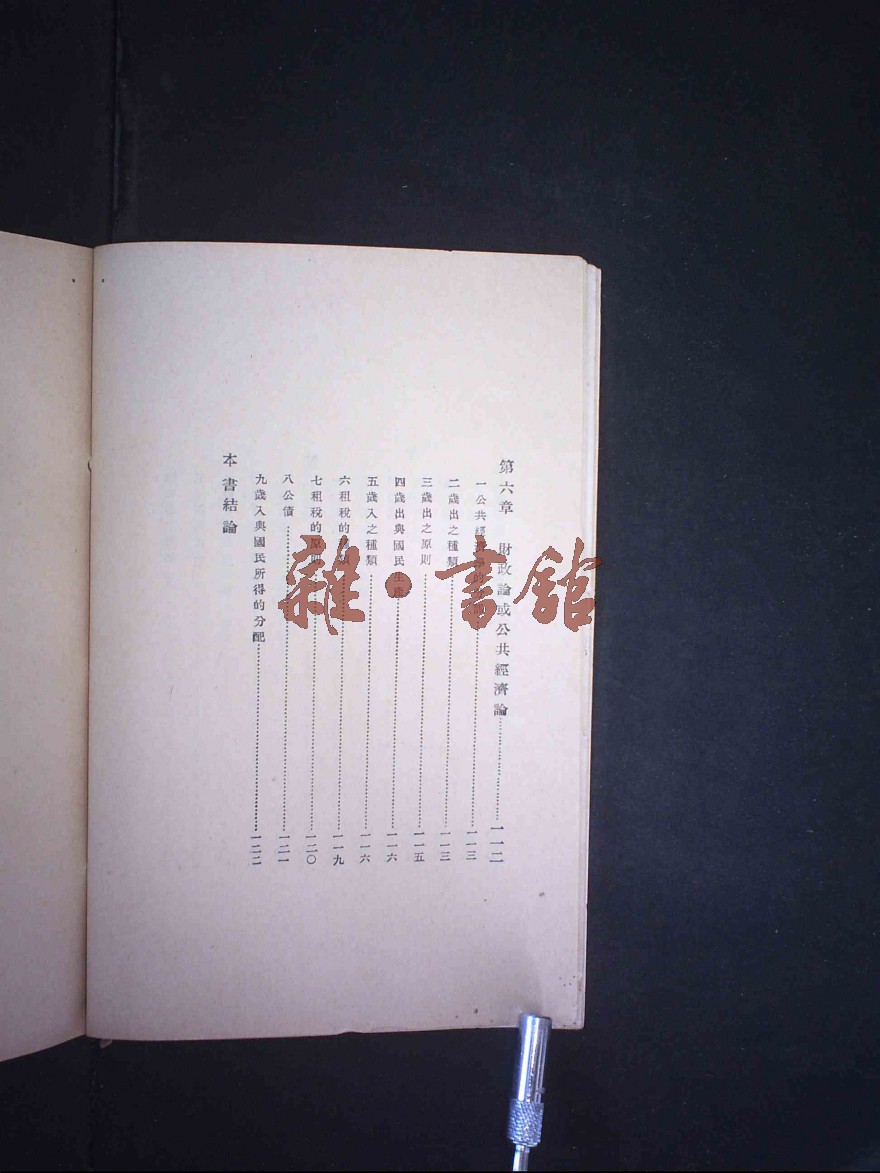 第六章 財政論或公共經濟論……一一二
一公共經……一一三
二歲出之種類……一一三
三歲出之原則……一一五
四歲出與國民生產……一一六
五歲入之種類……一一六
六租稅的種類……一一九
七租稅的原則……一二〇
八公債……一二一
九歲入與國民所得的分配……一二二
本書結論
雜·書館